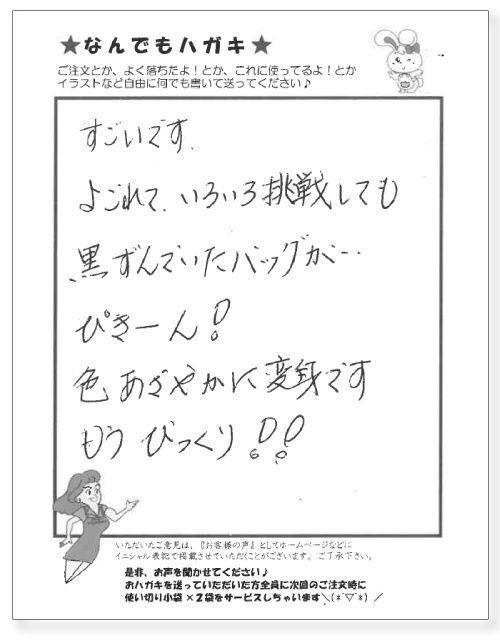 ★なんでもハガキ★
ご注文とか、よく落ちたよ！とか、これに使ってるよ！とか
イラストなど自由に何でも書いて送ってください♪
すごいです.
よごれて、いろいろ挑戦しても
黒ずんでいたバッグが…
ぴきーん！
色あざやかに変身です
もうびっくり！！
いただいたご意見は、『お客様の声』としてホームページなどに
イニシャル表記で掲載させていただくことがございます。ご了承下さい。
是非、お声を聞かせてください♪
おハガキを送っていただいた方全員に次回のご注文時に
使い切り小袋×2袋をサービスしちゃいます＼(*´▽`*)／